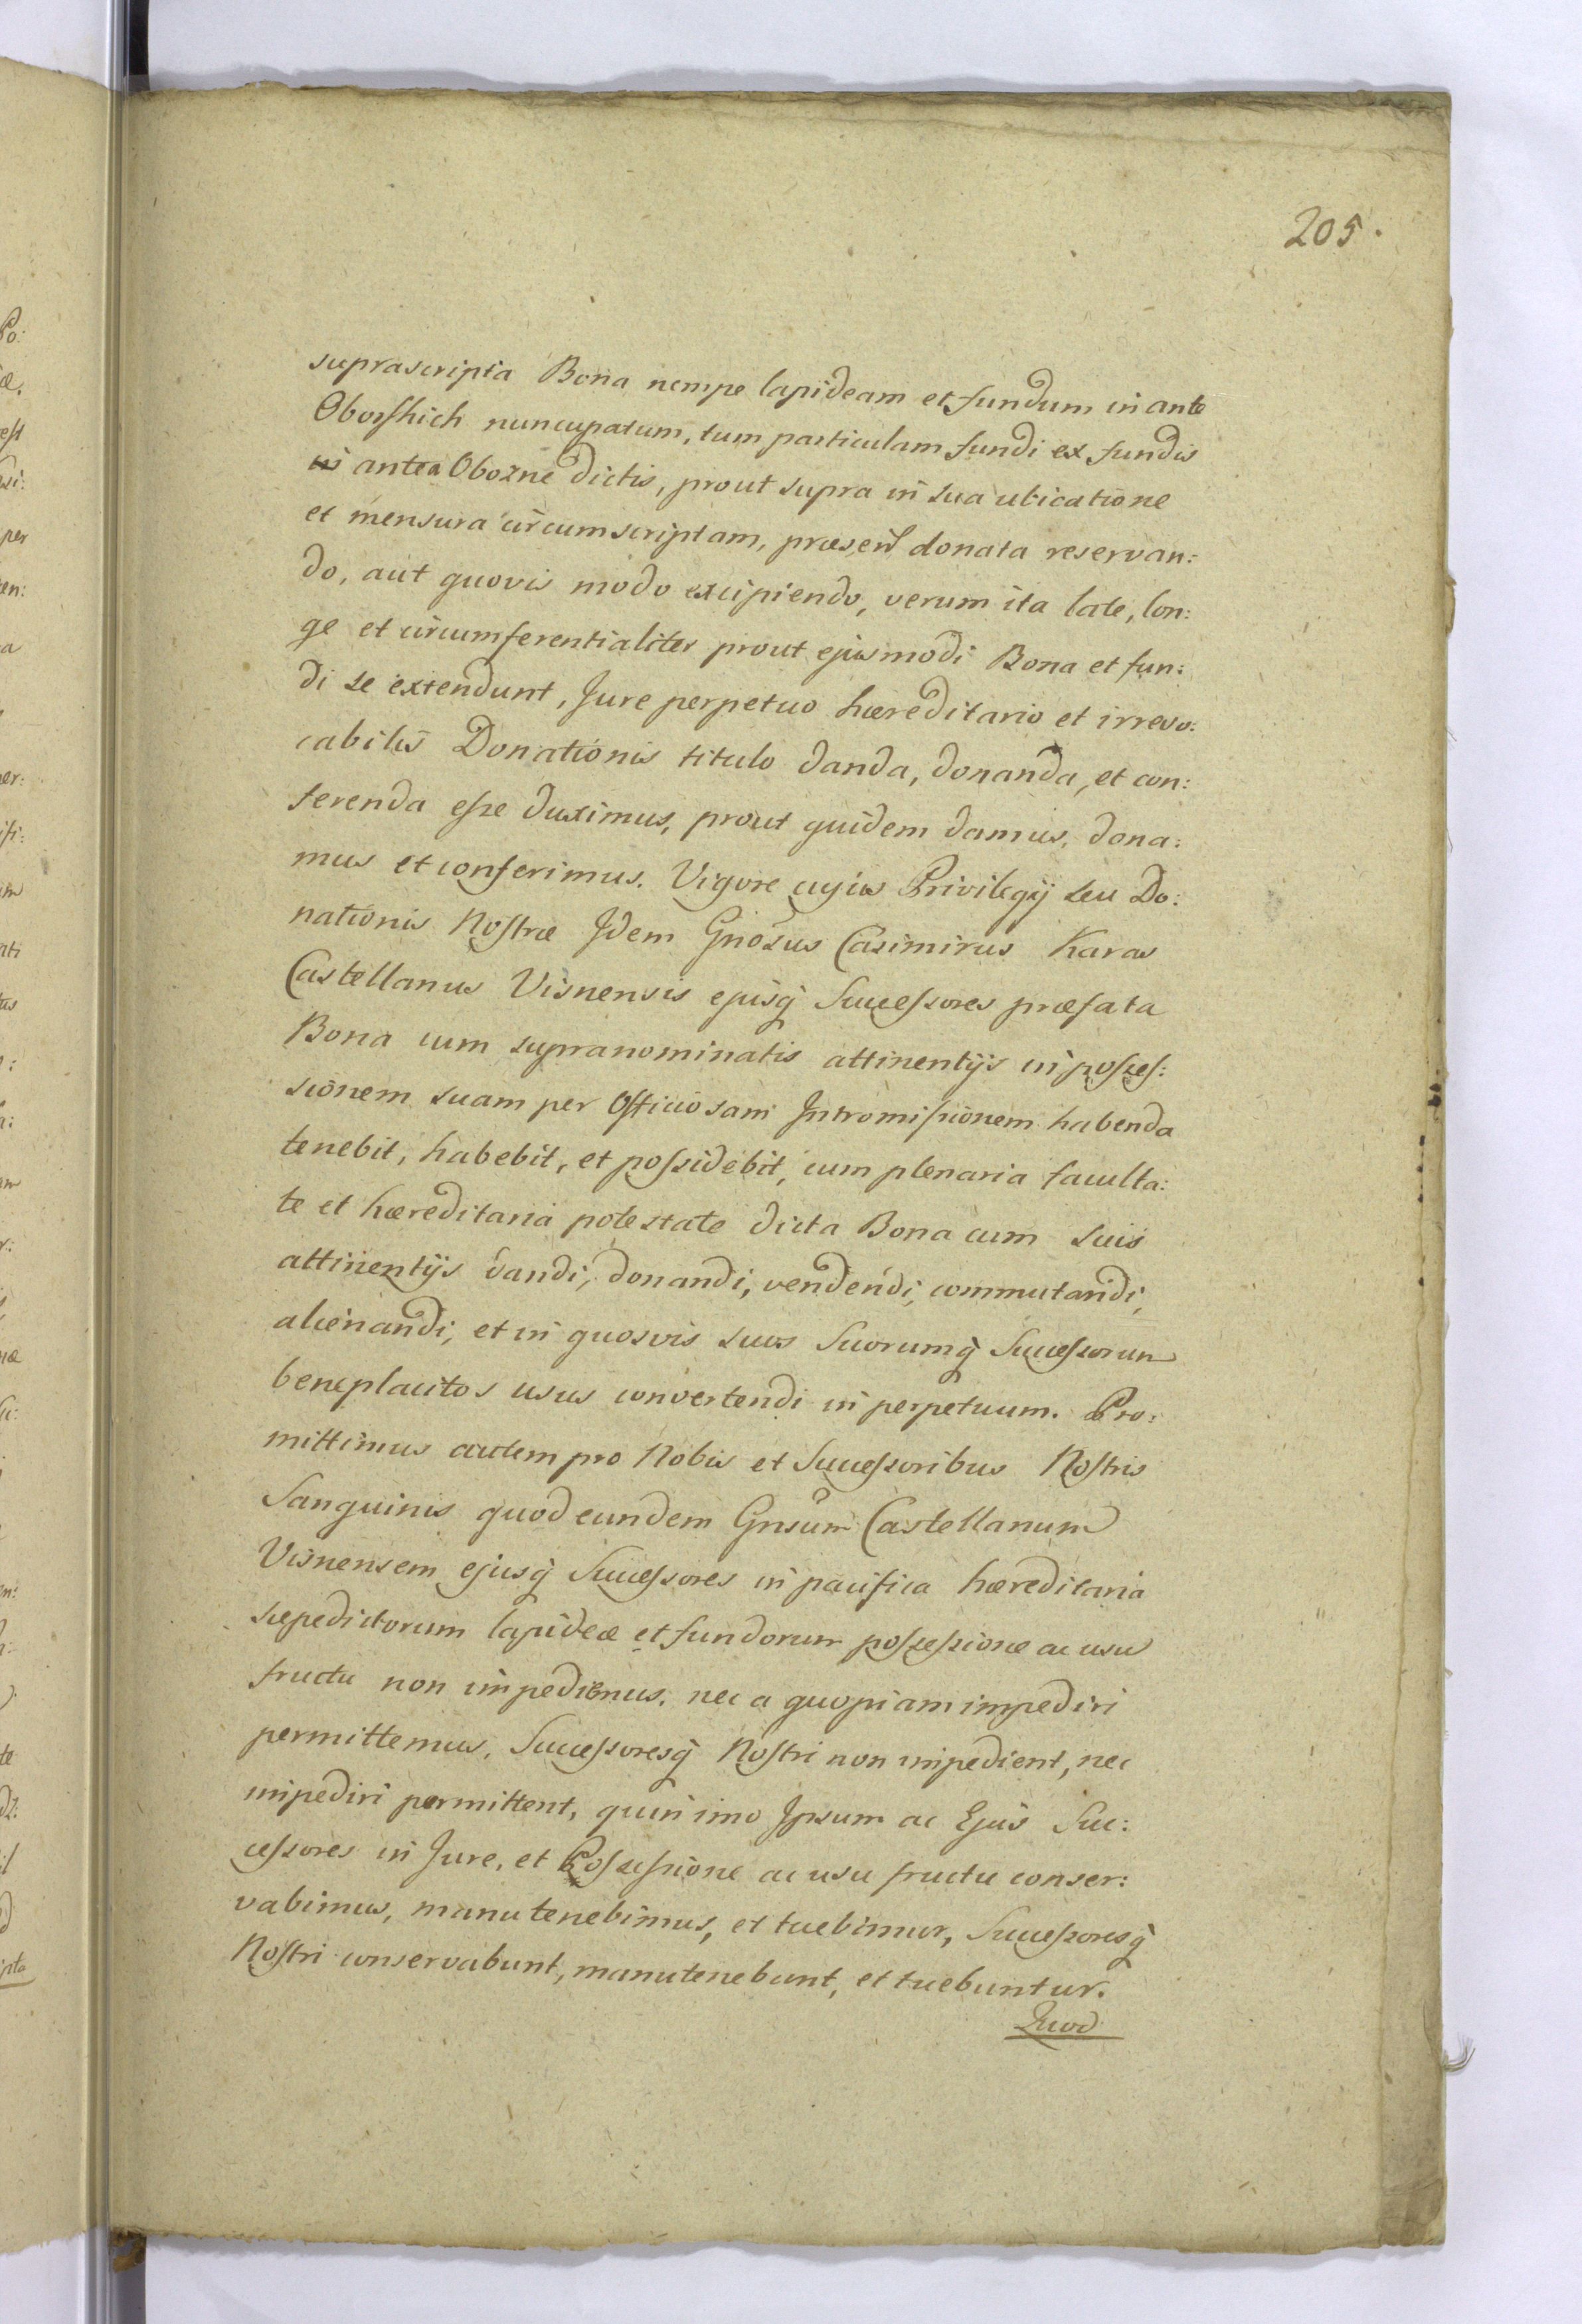 205.
suprascripta Bona nempe lapideam et fundum in ante
Oborskich nuncupatum, tum particulam fundi ex fundis
in antea Obozne dictis, prout supra in sua ubicatione
et mensura circumscriptam, præsenṫ donata reservan:
do, aut quovis modo excipiendo, verum ita late, lon:
ge et circumferentialiter prout ejusmodi Bona et fun:
di se extendunt, Jure perpetuo hæreditario et irrevo:
cabilis Donationis titulo danda, donanda, et con:
ferenda eſse duximus, prout quidem damus, dona:
mus et conferimus. Vigore cujus Privilegij seu Do:
nationis Noſtræ Jdem Gnosus Casimirus Karas
Castellanus Visnensis ejusq̃ Succeſsores præfata
Bona cum supranominatis attinentijs in poſseſ:
sionem suam per Officiosam Jntromiſsionem habenda
tenebit, habebit, et poſsidebit, cum plenaria faculta:
te et hæreditaria potestate dicta Bona cum suis
attinentijs dandi, donandi, vendendi, commutandi,
alienandi, et in quosvis suos Suorumq̃ Succeſsorum
beneplacitos usus convertendi in perpetuum. Pro:
mittimus autem pro Nobis et Succeſsoribus Noſtris
Sanguinis quod eundem Gnsum Castellanum
Visnensem ejusq̃ Succeſsores in pacifica hæreditaria
sæpedictorum lapideæ et fundorum poſseſsione ac usu
fructu non impediemus, nec a quopiam impediri
permittemus, Succeſsoresq̃ Noſtri non impedient, nec
impediri permittent, quin imo Jpsum ac Ejus Suc:
ceſsores in Jure, et Poſseſsione ac usu fructu conser:
vabimus, manutenebimus, et tuebimur, Succeſsoresq̃
Noſtri conservabunt, manutenebunt, et tuebuntur.
Quod